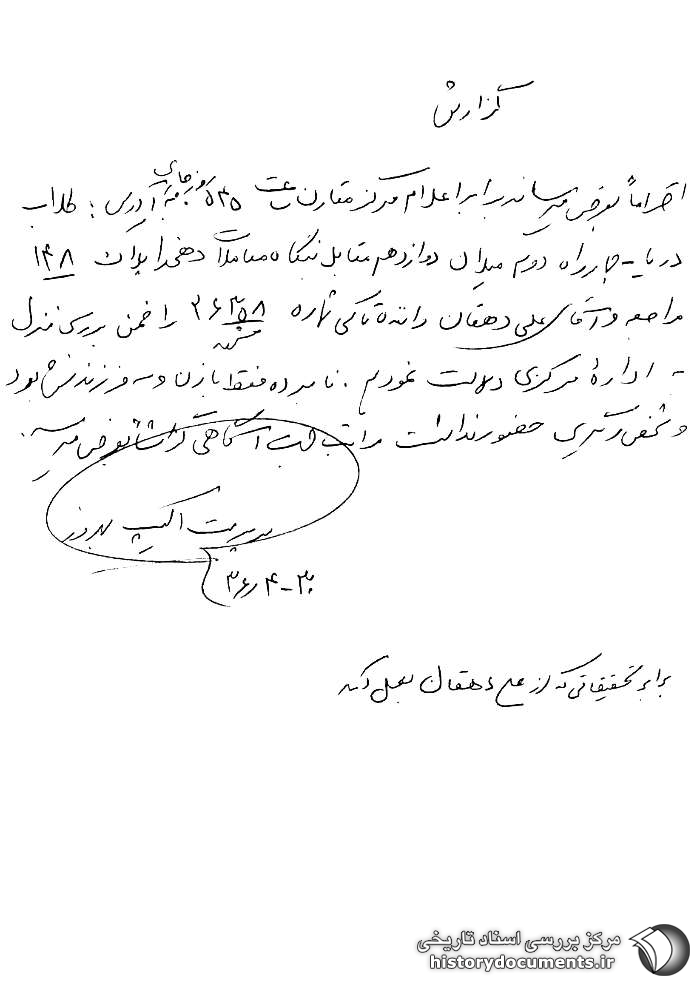 گزارش
احتراماً بعرض میرساند برابر اعلام مرکز مقارن ساعت ۵۴۵ روز جاری به آدرس: گلاب
دره - چهارراه دوم میدان دوازدهم مقابل بنگاه معاملات دهخدا پلاک ۱۴۸
مراجعه و آقای علی دهقان راننده تاکسی شماره را ضمن بررسی منزل
به اداره مرکزی دلالت نمودم. نامبرده فقط با زن و سه فرزندش بود
و شخص دیگری حضور نداشت مراتب جهت آگاهی گزارشاً بعرض میرسد.
سرپرست اکیپ بهروز
۳۶/۴-۳۰
برابر تحقیقاتی که از علی دهقان بعمل آمد
مرکز بررسی اسناد تاریخی
historydocuments.ir